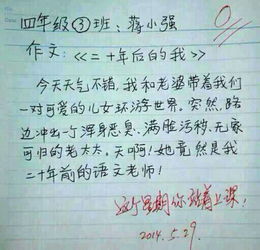 四年级③班:蒋小强
0
作文:《二十年后的我》
今天天气不错,我和老婆带着我们
一对可爱的儿女环游世界。突然,路
边冲出一个浑身恶臭、满脸污秽、无家
可归的老太太,天啊!她竟然是我
二十年前的语文老师!
这个星期你站着上课!
2014.5.29.